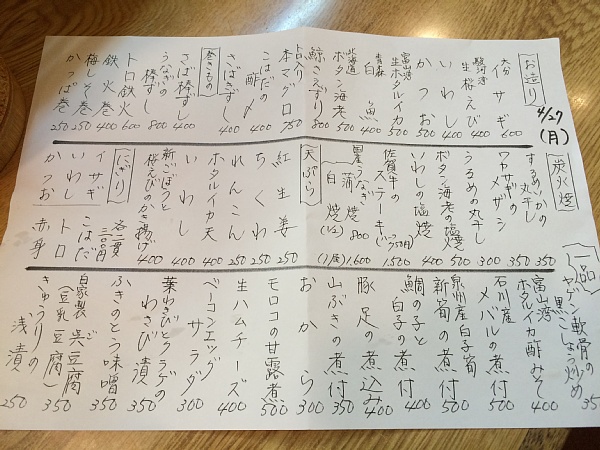 4/27(月)
お造り
大分 イサギ 600
駿河湾 生桜えび 400
いわし 400
かつお 500
富山湾 生ホタルイカ 400
青森 白魚 400
北海道 ボタン海老 500
鯨さえずり 800
トロ入り 本マグロ 750
こはだの酢〆 400
さばきずし 400
巻きもの
さば棒ずし 400
うなぎの棒ずし 800
トロ鉄火 600
鉄火巻 400
梅しそ巻 250
かっぱ巻 250
炭火焼
するめいかの丸干し 350
ワカサギのメザシ 350
うるめの丸干し 300
ボタン海老の塩焼 500
いわしの塩焼 400
佐賀牛のステーキ 1,500
うなぎ
蒲焼 800
白焼 (1/2)
(1尾) 1,600
天ぷら
紅生姜 250
ちくわ 250
れんこん 250
ホタルイカ天 400
いわし 400
新ごぼうと桜えびのかき揚げ 400
にぎり
各二貫 三〇〇円
イサギ こはだ
いわし トロ
かつお 赤身
一品
ヤゲン軟骨の黒こしょう炒め 350
富山湾 ホタルイカ酢みそ 400
石川産 メバルの煮付 500
泉州産白子筍 新筍の煮付 500
鯛の子と白子の煮付 400
豚足の煮込み 400
山ぶきの煮付 350
おから 300
モロコの甘露煮 500
生ハムチーズ 400
ベーコンエッグサラダ 300
葉わさびとクラゲのわさび漬 350
ふきのとう味噌 350
自家製 呉豆腐(豆乳豆腐) 350
きゅうりの浅漬 250